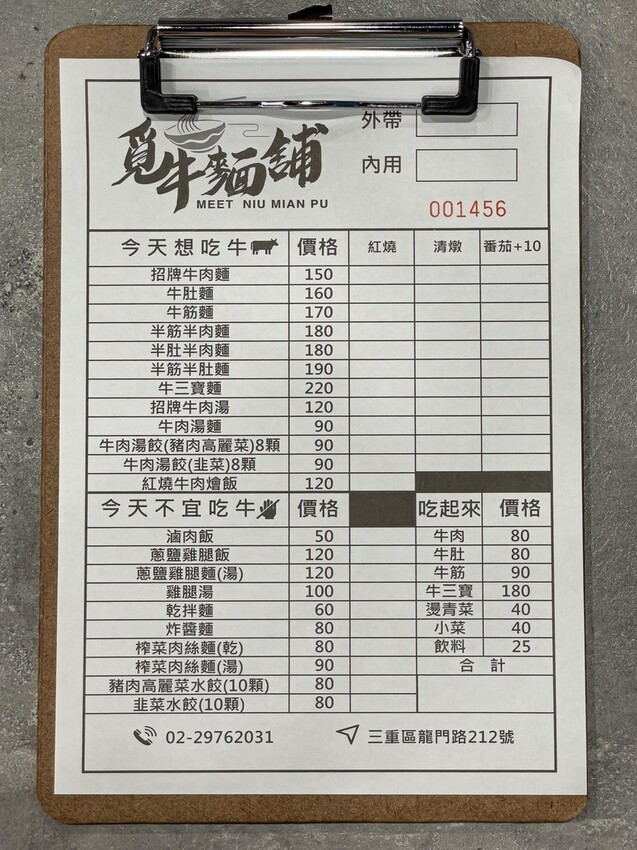 外帶
覓牛麵舖
內用
MEET NIU MIAN PU
001456
今天想吃牛 價格 紅燒 清燉 番茄+10
招牌牛肉麵 150
牛肚麵 160
牛筋麵 170
半筋半肉麵 180
半肚半肉麵 180
半筋半肚麵 190
牛三寶麵 220
招牌牛肉湯 120
牛肉湯麵 90
牛肉湯餃(豬肉高麗菜)8顆 90
牛肉湯餃(韭菜)8顆 90
紅燒牛肉燴飯 120
今天不宜吃牛 價格 吃起來 價格
滷肉飯 50 牛肉 80
蔥鹽雞腿飯 120 牛肚 80
蔥鹽雞腿麵(湯) 120 牛筋 90
雞腿湯 100 牛三寶 180
乾拌麵 60 燙青菜 40
炸醬麵 80 小菜 40
榨菜肉絲麵(乾) 80 飲料 25
榨菜肉絲麵(湯) 90 合 計
豬肉高麗菜水餃(10顆) 80
韭菜水餃(10顆) 80
02-29762031 三重區龍門路212號